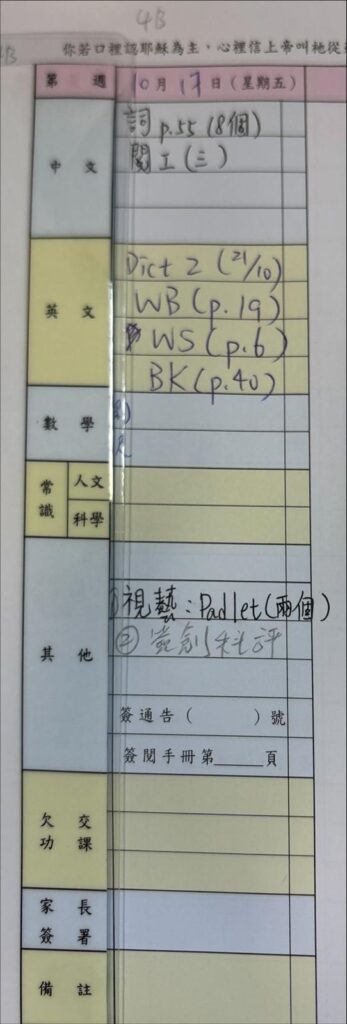 4B
你若口裡認耶穌為主，心裡信上帝叫祂從
第 週 10月17日(星期五)
中文
詞 p.55 (8個)
閱工(三)
英文
Dict 2 (21/10)
WB (p.19)
WS (p.6)
BK (p.40)
數學
常識
人文
科學
其他
視藝：Padlet(兩個)
② 科評
簽通告( )號
簽閱手冊第______頁
欠交功課
家長簽署
備註